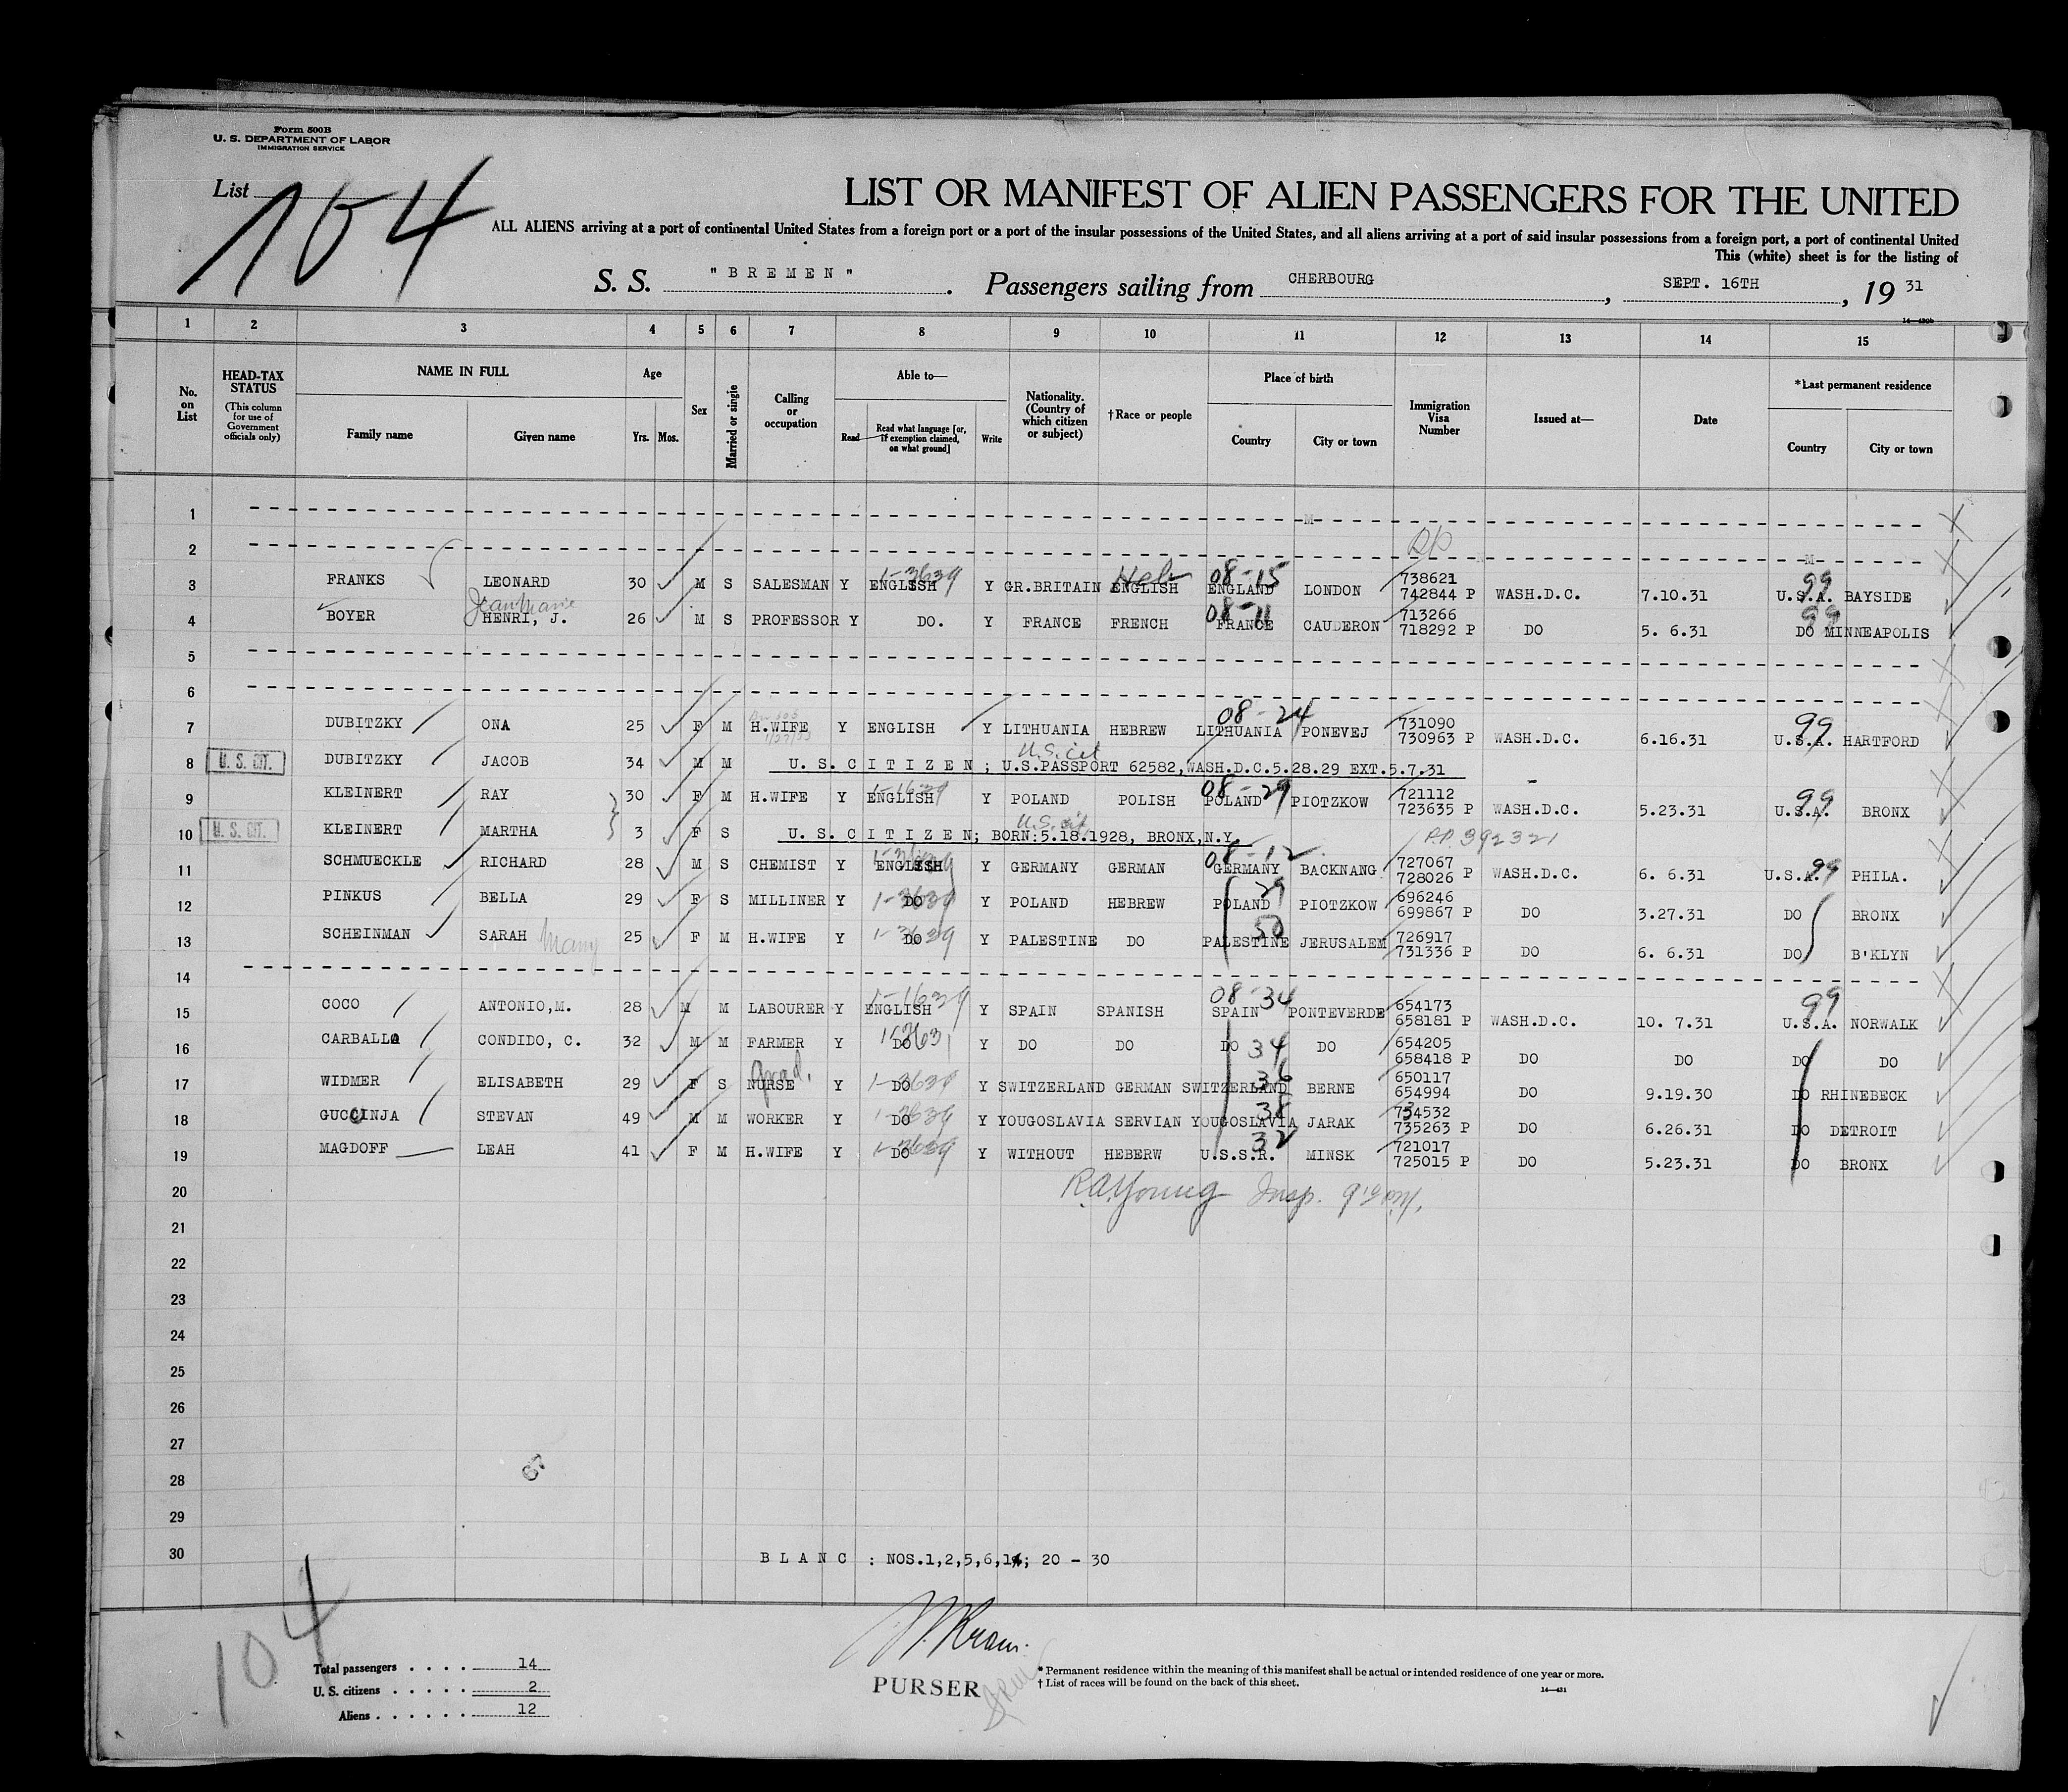 Form 500B
U. S. DEPARTMENT OF LABOR
IMMIGRATION SERVICE
List 104
LIST OR MANIFEST OF ALIEN PASSENGERS FOR THE UNITED
ALL ALIENS arriving at a port of continental United States from a foreign port or a port of the insular possessions of the United States, and all aliens arriving at a port of said insular possessions from a foreign port, a port of continental United
This (white) sheet is for the listing of
S. S. "BREMEN". Passengers sailing from CHERBOURG, SEPT. 16TH, 19 31
14—430b
1 2 3 4 5 6 7 8 9 10 11 12 13 14 15
No. on List
HEAD-TAX STATUS (This column for use of Government officials only)
NAME IN FULL
Family name Given name
Age
Yrs. Mos.
Sex
Married or single
Calling or occupation
Able to—
Read Read what language [or, if exemption claimed, on what ground] Write
Nationality. (Country of which citizen or subject)
†Race or people
Place of birth
Country City or town
Immigration Visa Number
Issued at—
Date
*Last permanent residence
Country City or town
1
2
3 FRANKS LEONARD 30 M S SALESMAN Y ENGLISH 1-3639 Y GR.BRITAIN ENGLISH Heb 08-15 ENGLAND LONDON 738621 742844 P WASH.D.C. 7.10.31 99 U.S.A. BAYSIDE
4 BOYER Jean Marie HENRI, J. 26 M S PROFESSOR Y DO. Y FRANCE FRENCH 08-11 FRANCE CAUDERON 713266 718292 P DO 5. 6.31 99 DO MINNEAPOLIS
5
6
7 DUBITZKY ONA 25 F M H.WIFE Y ENGLISH Y LITHUANIA HEBREW 08-24 LITHUANIA PONEVEJ 731090 730963 P WASH.D.C. 6.16.31 99 U.S.A. HARTFORD
8 U. S. CIT. DUBITZKY JACOB 34 M M U.S. cit U. S. C I T I Z E N ; U.S.PASSPORT 62582,WASH.D.C.5.28.29 EXT.5.7.31
9 KLEINERT RAY 30 F M H.WIFE Y ENGLISH Y POLAND POLISH 08-29 POLAND PIOTZKOW 721112 723635 P WASH.D.C. 5.23.31 99 U.S.A. BRONX
10 U. S. CIT. KLEINERT MARTHA 3 F S U.S. cit. U. S. C I T I Z E N; BORN:5.18.1928, BRONX,N.Y. P.P. 392321
11 SCHMUECKLE RICHARD 28 M S CHEMIST Y ENGLISH Y GERMANY GERMAN 08-12 GERMANY BACKNANG 727067 728026 P WASH.D.C. 6. 6.31 U.S.A. 99 PHILA.
12 PINKUS BELLA 29 F S MILLINER Y 1-3639 DO Y POLAND HEBREW 29 POLAND PIOTZKOW 696246 699867 P DO 3.27.31 DO BRONX
13 SCHEINMAN SARAH Mary 25 F M H.WIFE Y 1-3639 DO Y PALESTINE DO 50 PALESTINE JERUSALEM 726917 731336 P DO 6. 6.31 DO B'KLYN
14
15 COCO ANTONIO,M. 28 M M LABOURER Y ENGLISH Y SPAIN SPANISH 08-34 SPAIN PONTEVERDE 654173 658181 P WASH.D.C. 10. 7.31 99 U.S.A. NORWALK
16 CARBALLO CONDIDO, C. 32 M M FARMER Y DO Y DO DO DO 34 DO 654205 658418 P DO DO DO DO
17 WIDMER ELISABETH 29 F S grad. NURSE Y 1-3639 DO Y SWITZERLAND GERMAN SWITZERLAND 36 BERNE 650117 654994 DO 9.19.30 DO RHINEBECK
18 GUCCINJA STEVAN 49 M M WORKER Y 1-3639 DO Y YOUGOSLAVIA SERVIAN YOUGOSLAVIA 38 JARAK 734532 735263 P DO 6.26.31 DO DETROIT
19 MAGDOFF LEAH 41 F M H.WIFE Y 1-3639 DO Y WITHOUT HEBERW U.S.S.R. 32 MINSK 721017 725015 P DO 5.23.31 DO BRONX
20 R.A.Young Insp.
21
22
23
24
25
26
27
28
29
30
B L A N C : NOS.1,2,5,6,14; 20 - 30
104
Total passengers . . . . 14
U. S. citizens . . . . . 2
Aliens . . . . . . 12
PURSER
* Permanent residence within the meaning of this manifest shall be actual or intended residence of one year or more.
† List of races will be found on the back of this sheet.
14—431